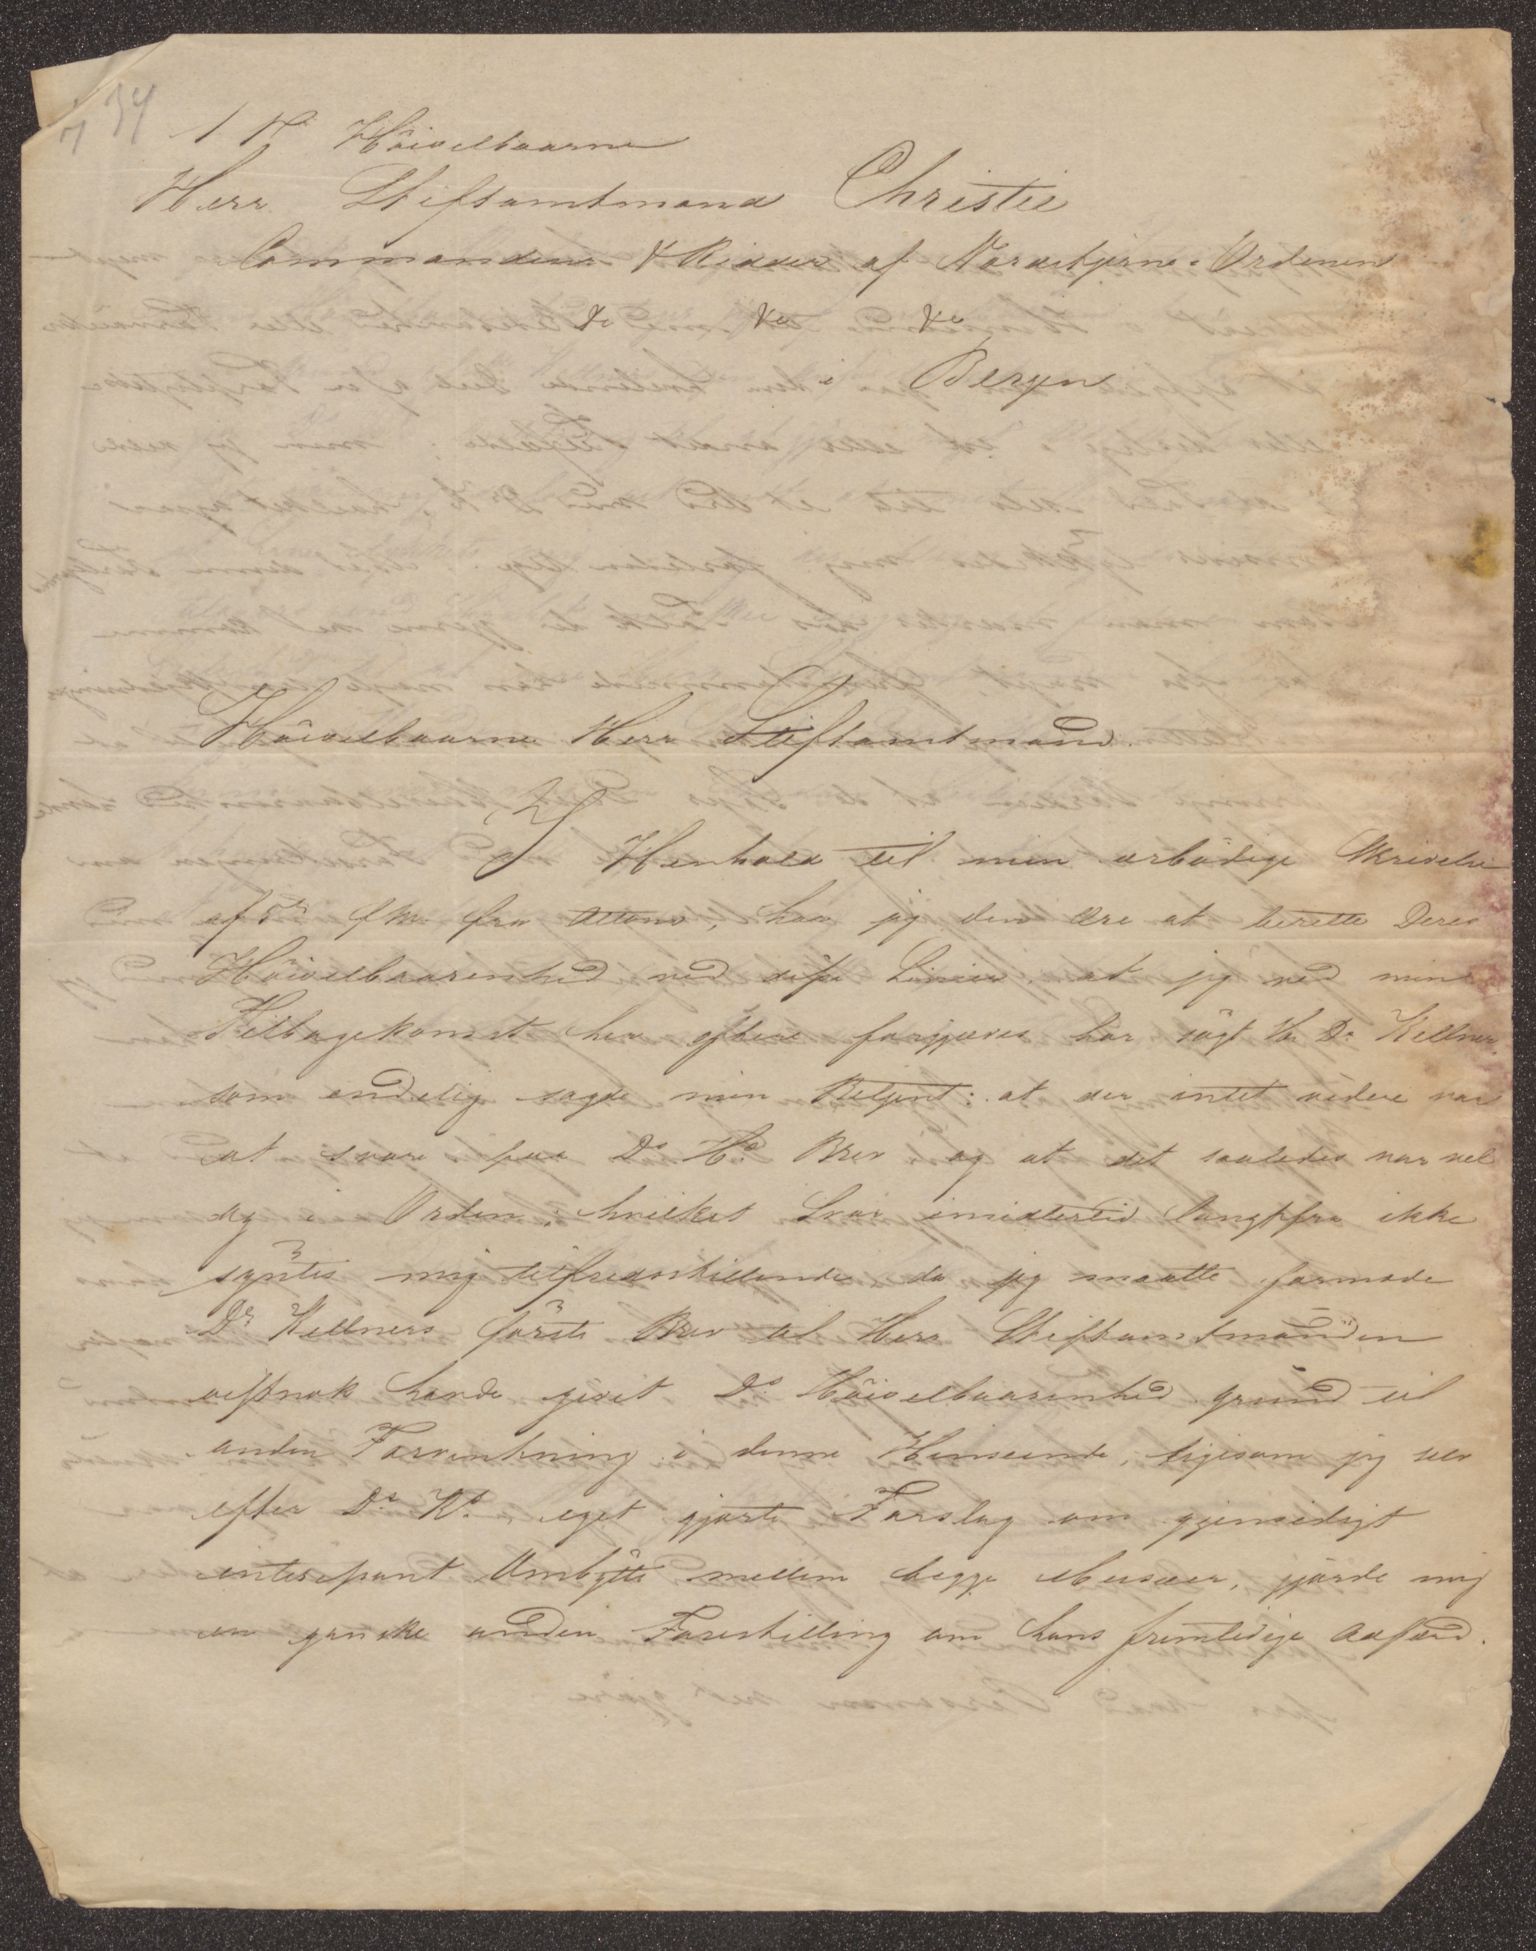 7 34
S. T. Høivelbaarne
Herr Stiftsamtmand Christie
Commandeur & Ridder af Nordstjerne-Ordenen
&c &c &c
i Bergen
Høivelbaarne Herr Stiftsamtmand.
I Henhold til min ærbødige Skrivelse
af f. M. fra Altona, har jeg den Ære at berette Deres
Høivelbaarenhed ved disse Linier, at jeg ved min
Tilbagekomst her oftere forgjæves har søgt Hr. Dr. Kellner,
som endelig sagde min Betjent: at der intet videre var
at svare paa Ds. Hs. Brev og at det saaledes var vel
og i Orden; hvilket Svar imidlertid langtfra ikke
syntes mig tilfredsstillende da jeg maatte formode
Dr. Kellners første Brev til Herr Stiftsamtmanden
vistnok havde givet Ds. Høivelbaarenhed grund til
anden Forventning i denne Henseende, ligesom jeg selv
efter Ds. Ks. eget gjorte Forslag om gjensidigt
interessant Ombytte mellem begge Museer, gjorde mig
en ganske anden Forestilling om hans fremtidige Adfærd.